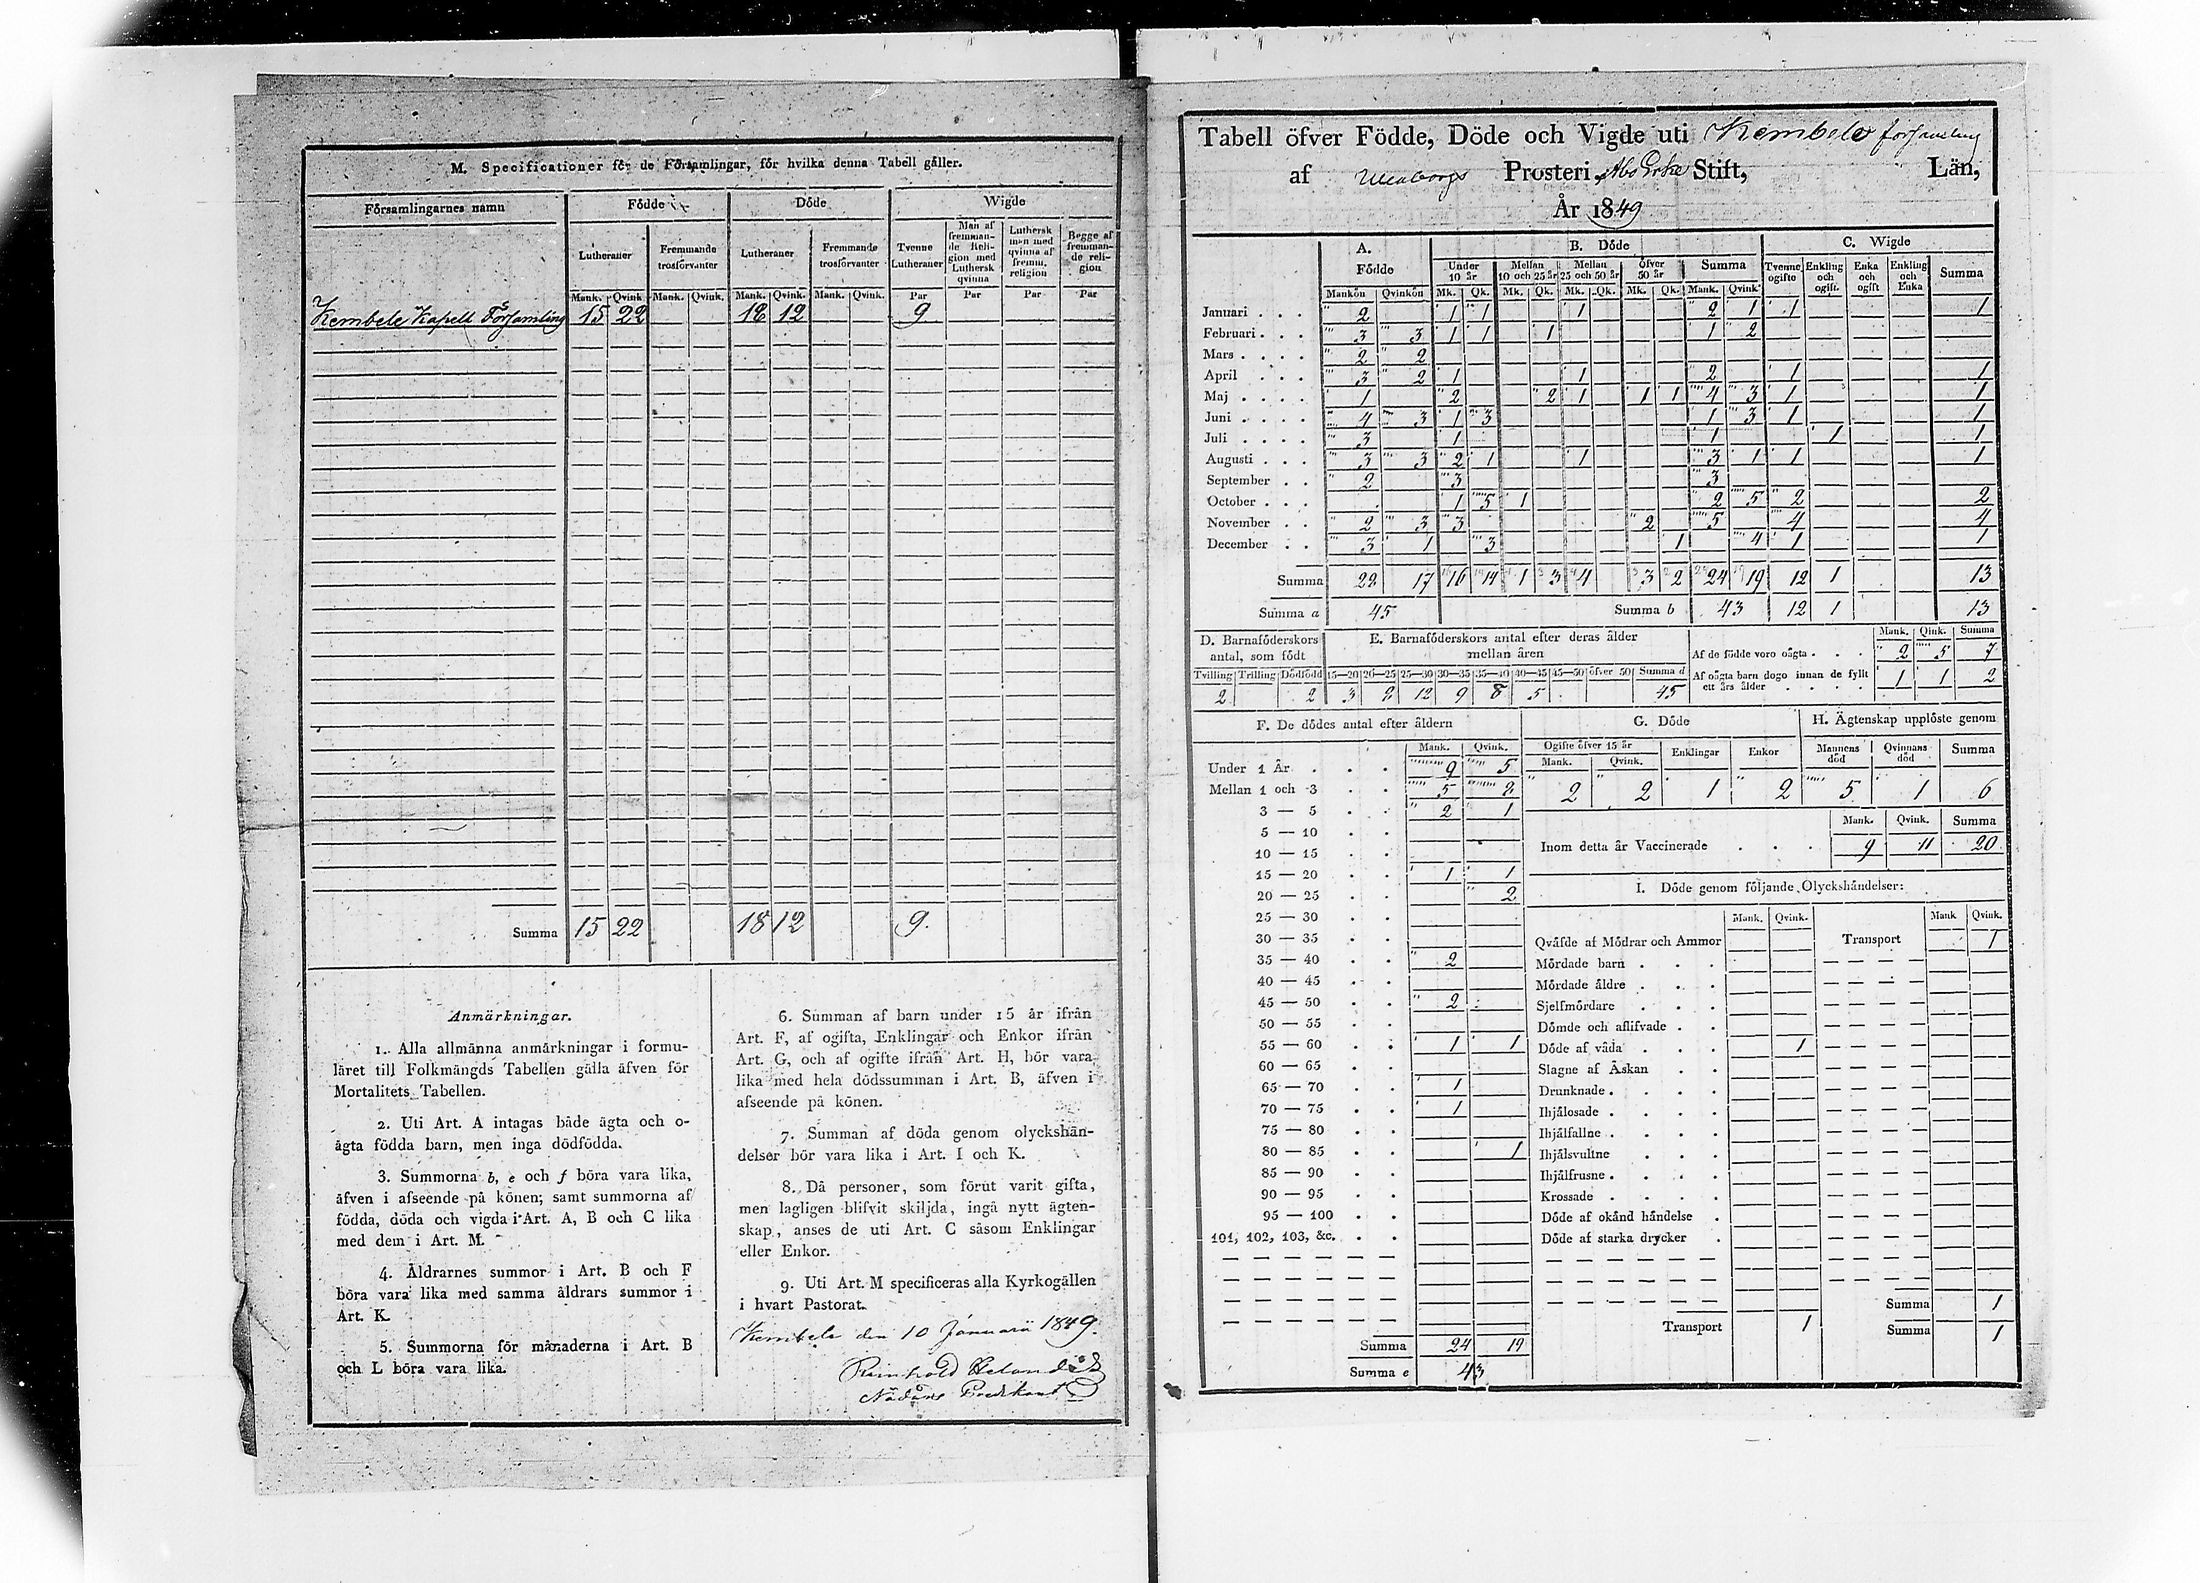 M. Specificationer för de Församlingar, för hvilka denna Tabell gäller.
Församlingarnes namn | Födde | Döde | Wigde
Lutheraner | Fremmande trosförvanter | Lutheraner | Fremmande trosförvanter | Tvenne Lutheraner | Man af fremmande Religion med Luthersk qvinna | Luthersk man med qvinna af fremm. religion | Begge af fremmande religion
Mank. | Qvink. | Mank. | Qvink. | Mank. | Qvink. | Mank. | Qvink. | Par | Par | Par | Par
Kembele Kapell Församling 15 22 18 12 9
Summa 15 22 18 12 9.
Anmärkningar.
1. Alla allmänna anmärkningar i formu-
läret till Folkmängds Tabellen gälla äfven för
Mortalitets Tabellen.
2. Uti Art. A intagas både ägta och o-
ägta födda barn, men inga dödfödda.
3. Summorna b, e och f böra vara lika,
äfven i afseende på könen; samt summorna af
födda, döda och vigda i Art. A, B och C lika
med dem i Art. M.
4. Åldrarnes summor i Art. B och F
böra vara lika med samma åldrars summor i
Art. K.
5. Summorna för månaderna i Art. B
och L böra vara lika.
6. Summan af barn under 15 år ifrån
Art. F, af ogifta, Enklingar och Enkor ifrån
Art. G, och af ogifte ifrån Art. H, bör vara
lika med hela dödssumman i Art. B, äfven i
afseende på könen.
7. Summan af döda genom olyckshän-
delser bör vara lika i Art. I och K.
8. Då personer, som förut varit gifta,
men lagligen blifvit skiljda, ingå nytt ägten-
skap, anses de uti Art. C såsom Enklingar
eller Enkor.
9. Uti Art. M specificeras alla Kyrkogällen
i hvart Pastorat.
Kembele den 10 Januarii 1849.
Reinhold
Nådårs Predikant
Tabell öfver Födde, Döde och Vigde uti Kembele församling
af Uleåborgs Prosteri, Åbo Erke Stift, Län,
År 1849
A. Födde | B. Döde | C. Wigde
Under 10 år | Mellan 10 och 25 år | Mellan 25 och 50 år | Öfver 50 år | Summa | Tvenne ogifte | Enkling och ogift. | Enka och ogift | Enkling och Enka | Summa
Mankön | Qvinkön | Mk. | Qk. | Mk. | Qk. | Mk. | Qk. | Mk. | Qk. | Mank. | Qvink.
Januari 2 1 1 1 2 1 1 1
Februari 3 3 1 1 1 1 2
Mars 2 2
April 3 2 1 1 2 1 1
Maj 1 2 2 1 1 1 4 3 1 1
Juni 4 3 1 3 1 3 1 1
Juli 3 1 1 1 1
Augusti 3 3 2 1 1 3 1 1 1
September 2 3 3
October 1 5 1 2 5 2 2
November 2 3 3 2 5 4 4
December 3 1 3 1 4 1 1
Summa 22 17 16 14 1 3 4 3 2 24 19 12 1 13
Summa a 45 Summa b 43 12 1 13
D. Barnaföderskors antal, som födt
Tvilling | Trilling | Dödfödd
2 2
E. Barnaföderskors antal efter deras ålder mellan åren
15—20 | 20—25 | 25—30 | 30—35 | 35—40 | 40—45 | 45—50 | öfver 50 | Summa d
3 8 12 9 8 5 45
Mank. | Qink. | Summa
Af de födde voro oägta 2 5 7
Af oägta barn dogo innan de fyllt ett års ålder 1 1 2
F. De dödes antal efter åldern
Mank. | Qvink.
Under 1 År 9 5
Mellan 1 och 3 5 8
3 — 5 2 1
5 — 10
10 — 15
15 — 20 1 1
20 — 25 2
25 — 30
30 — 35
35 — 40 2
40 — 45
45 — 50 2
50 — 55
55 — 60 1 1
60 — 65
65 — 70 1
70 — 75 1
75 — 80
80 — 85 1
85 — 90
90 — 95
95 — 100
101, 102, 103, &c.
Summa 24 19
Summa e 43
G. Döde
Ogifte öfver 15 år | Enklingar | Enkor
Mank. | Qvink.
2 2 1 2
H. Ägtenskap upplöste genom
Mannens död | Qvinnans död | Summa
5 1 6
Mank. | Qvink. | Summa
Inom detta år Vaccinerade 9 11 20
I. Döde genom följande Olyckshändelser:
Mank. | Qvink. | Mank | Qvink.
Qväfde af Mödrar och Ammor Transport 1
Mördade barn
Mördade äldre
Sjelfmördare
Dömde och aflifvade
Döde af våda 1
Slagne af Åskan
Drunknade
Ihjälosade
Ihjälfallne
Ihjälsvultne
Ihjälfrusne
Krossade
Döde af okänd händelse
Döde af starka drycker
Summa 1
Transport 1 Summa 1